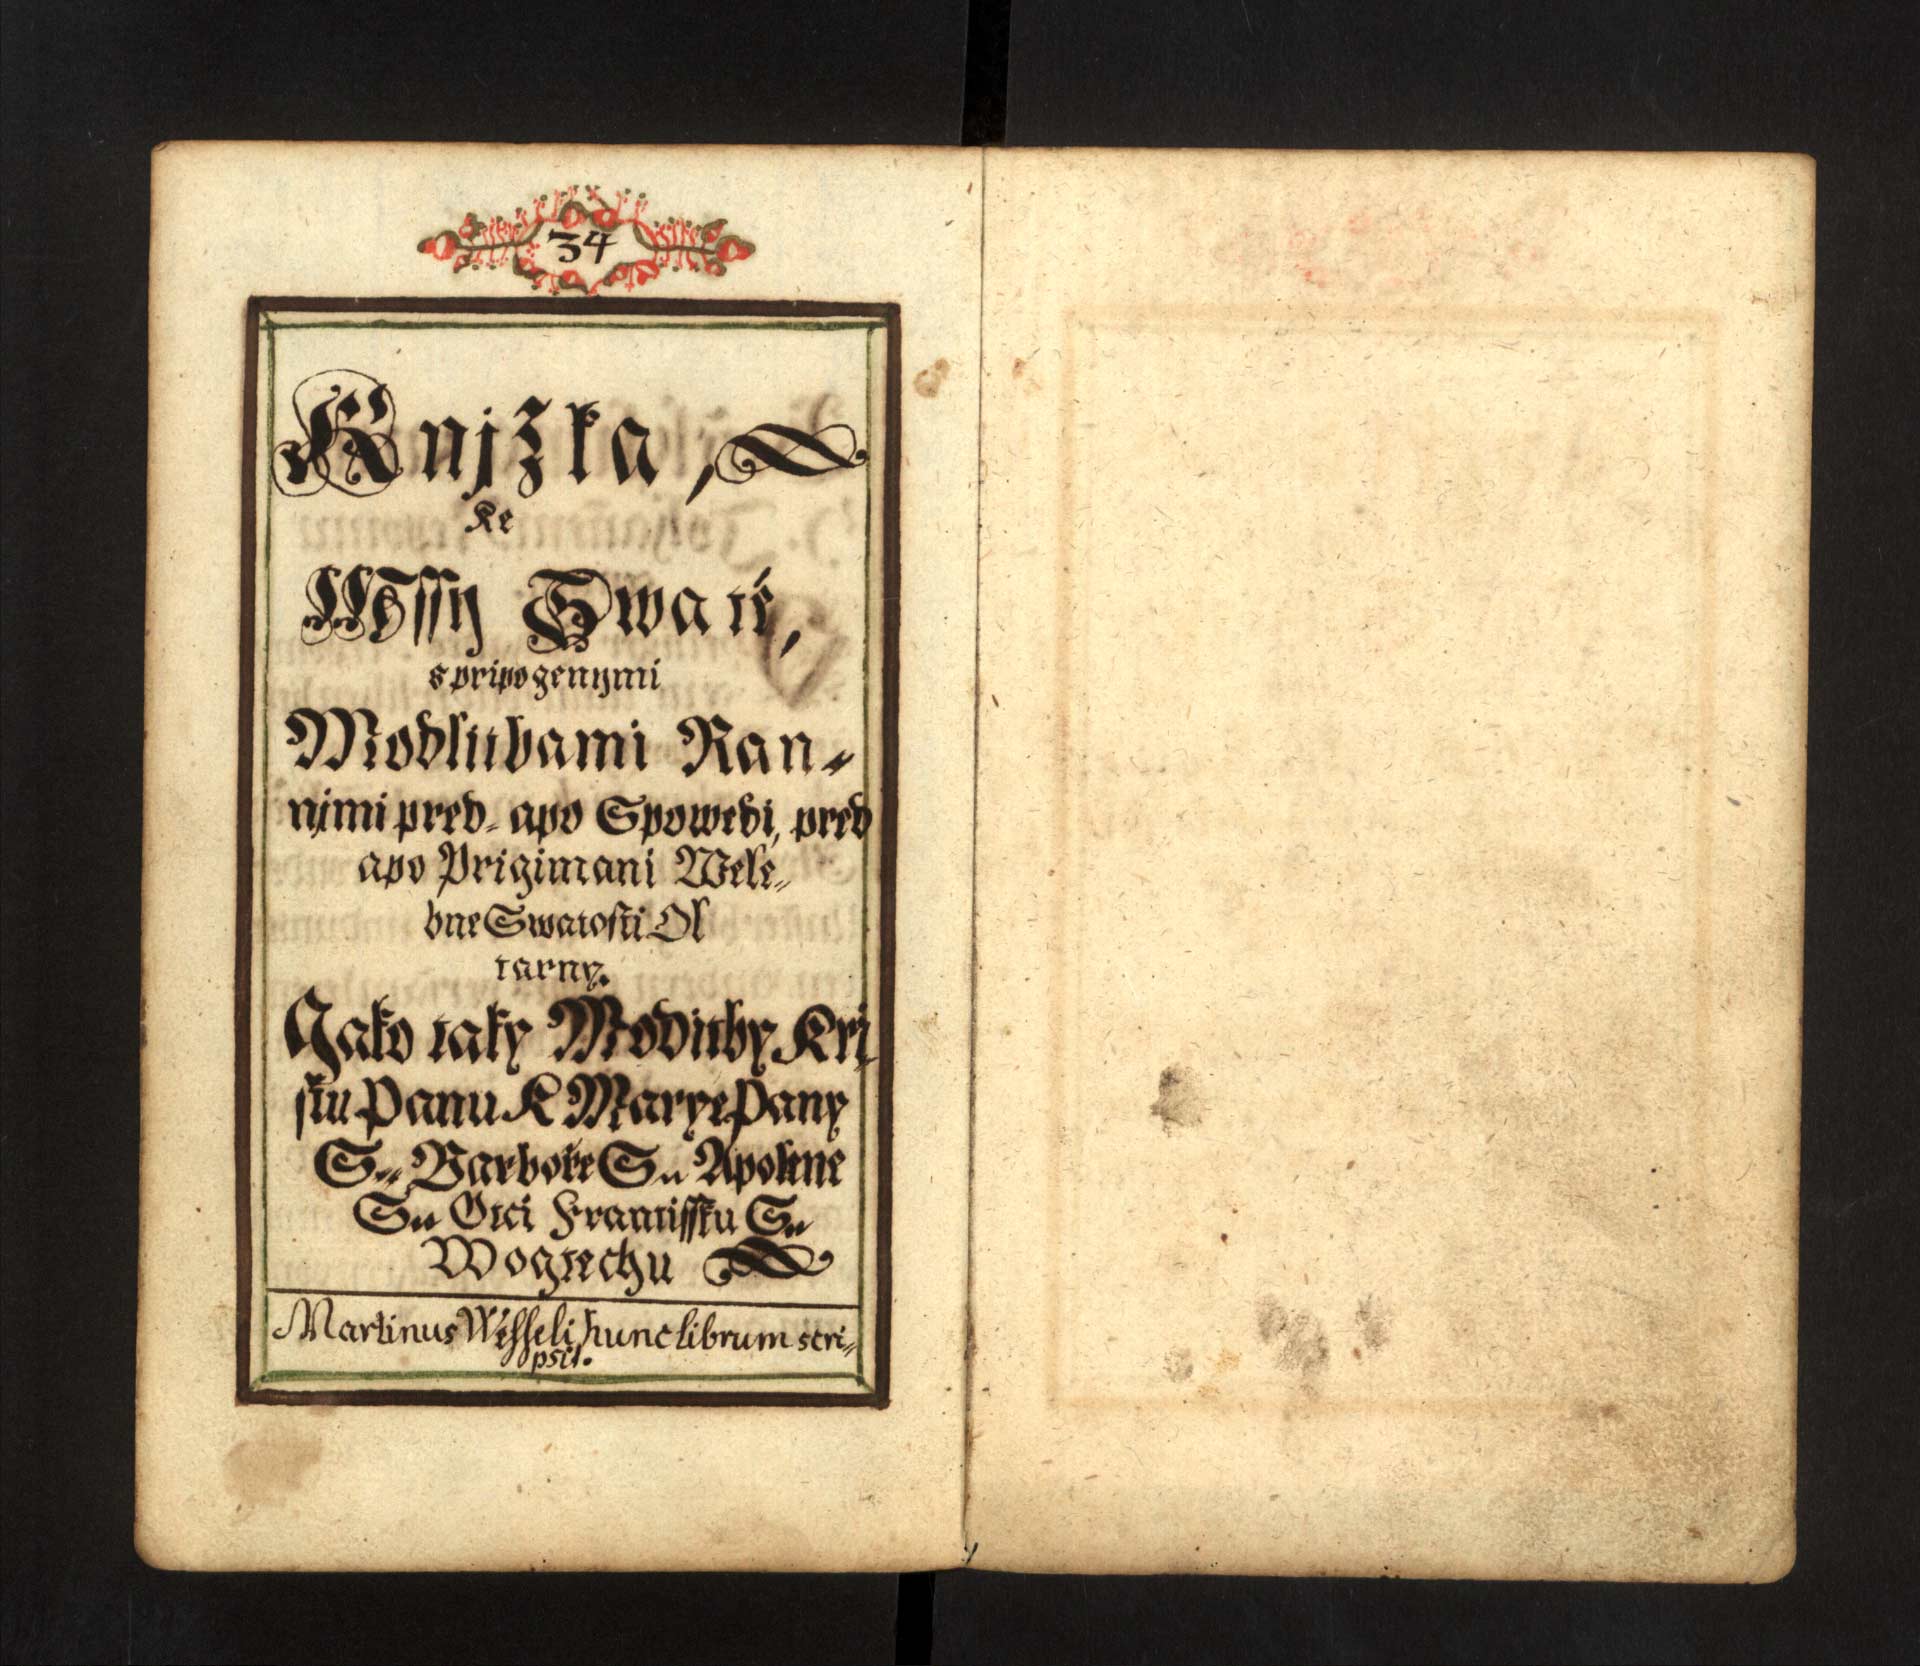 34
Knjžka,
Ke
Mssy Swaté,
s pripogenymi
Modlitbami Ran=
njmi pred= apo Spowedi, pred
apo Prigimani Wele=
bne Swatosti Ol
tarny.
Jako taky Moditby Kri
stu Panu K Marye Pany
S= Barboře S= Apolene
S= Otci Frantissku S=
Wogtechu
Martinus Wesseli hunc librum scri=
psit.